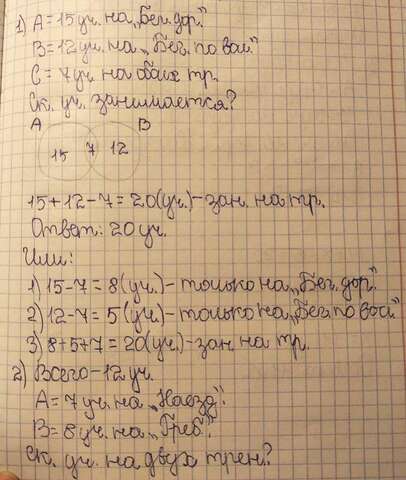 1) A = 15 уч. на „Бег. дор."
B = 12 уч. на „Бег. по вол."
C = 7 уч. на обоих тр.
Ск. уч. занимается?
A B
15 7 12
15 + 12 - 7 = 20 (уч.) - зан. на тр.
Ответ: 20 уч.
Или:
1) 15 - 7 = 8 (уч.) - только на „Бег. дор."
2) 12 - 7 = 5 (уч.) - только на „Бег. по вол."
3) 8 + 5 + 7 = 20 (уч.) - зан. на тр.
2) Всего - 12 уч.
A = 7 уч. на „Наезд".
B = 8 уч. на „Греб".
Ск. уч. на двух трен.?